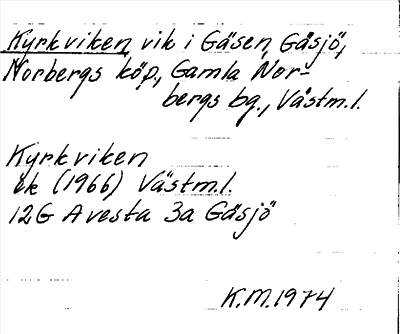 Kyrkviken, vik i Gäsen, Gåsjö,
Norbergs köp., Gamla Nor-
bergs bg., Västm.l.
Kyrkviken
ek (1966) Västm.l.
12G Avesta 3a Gåsjö
K.M.1974